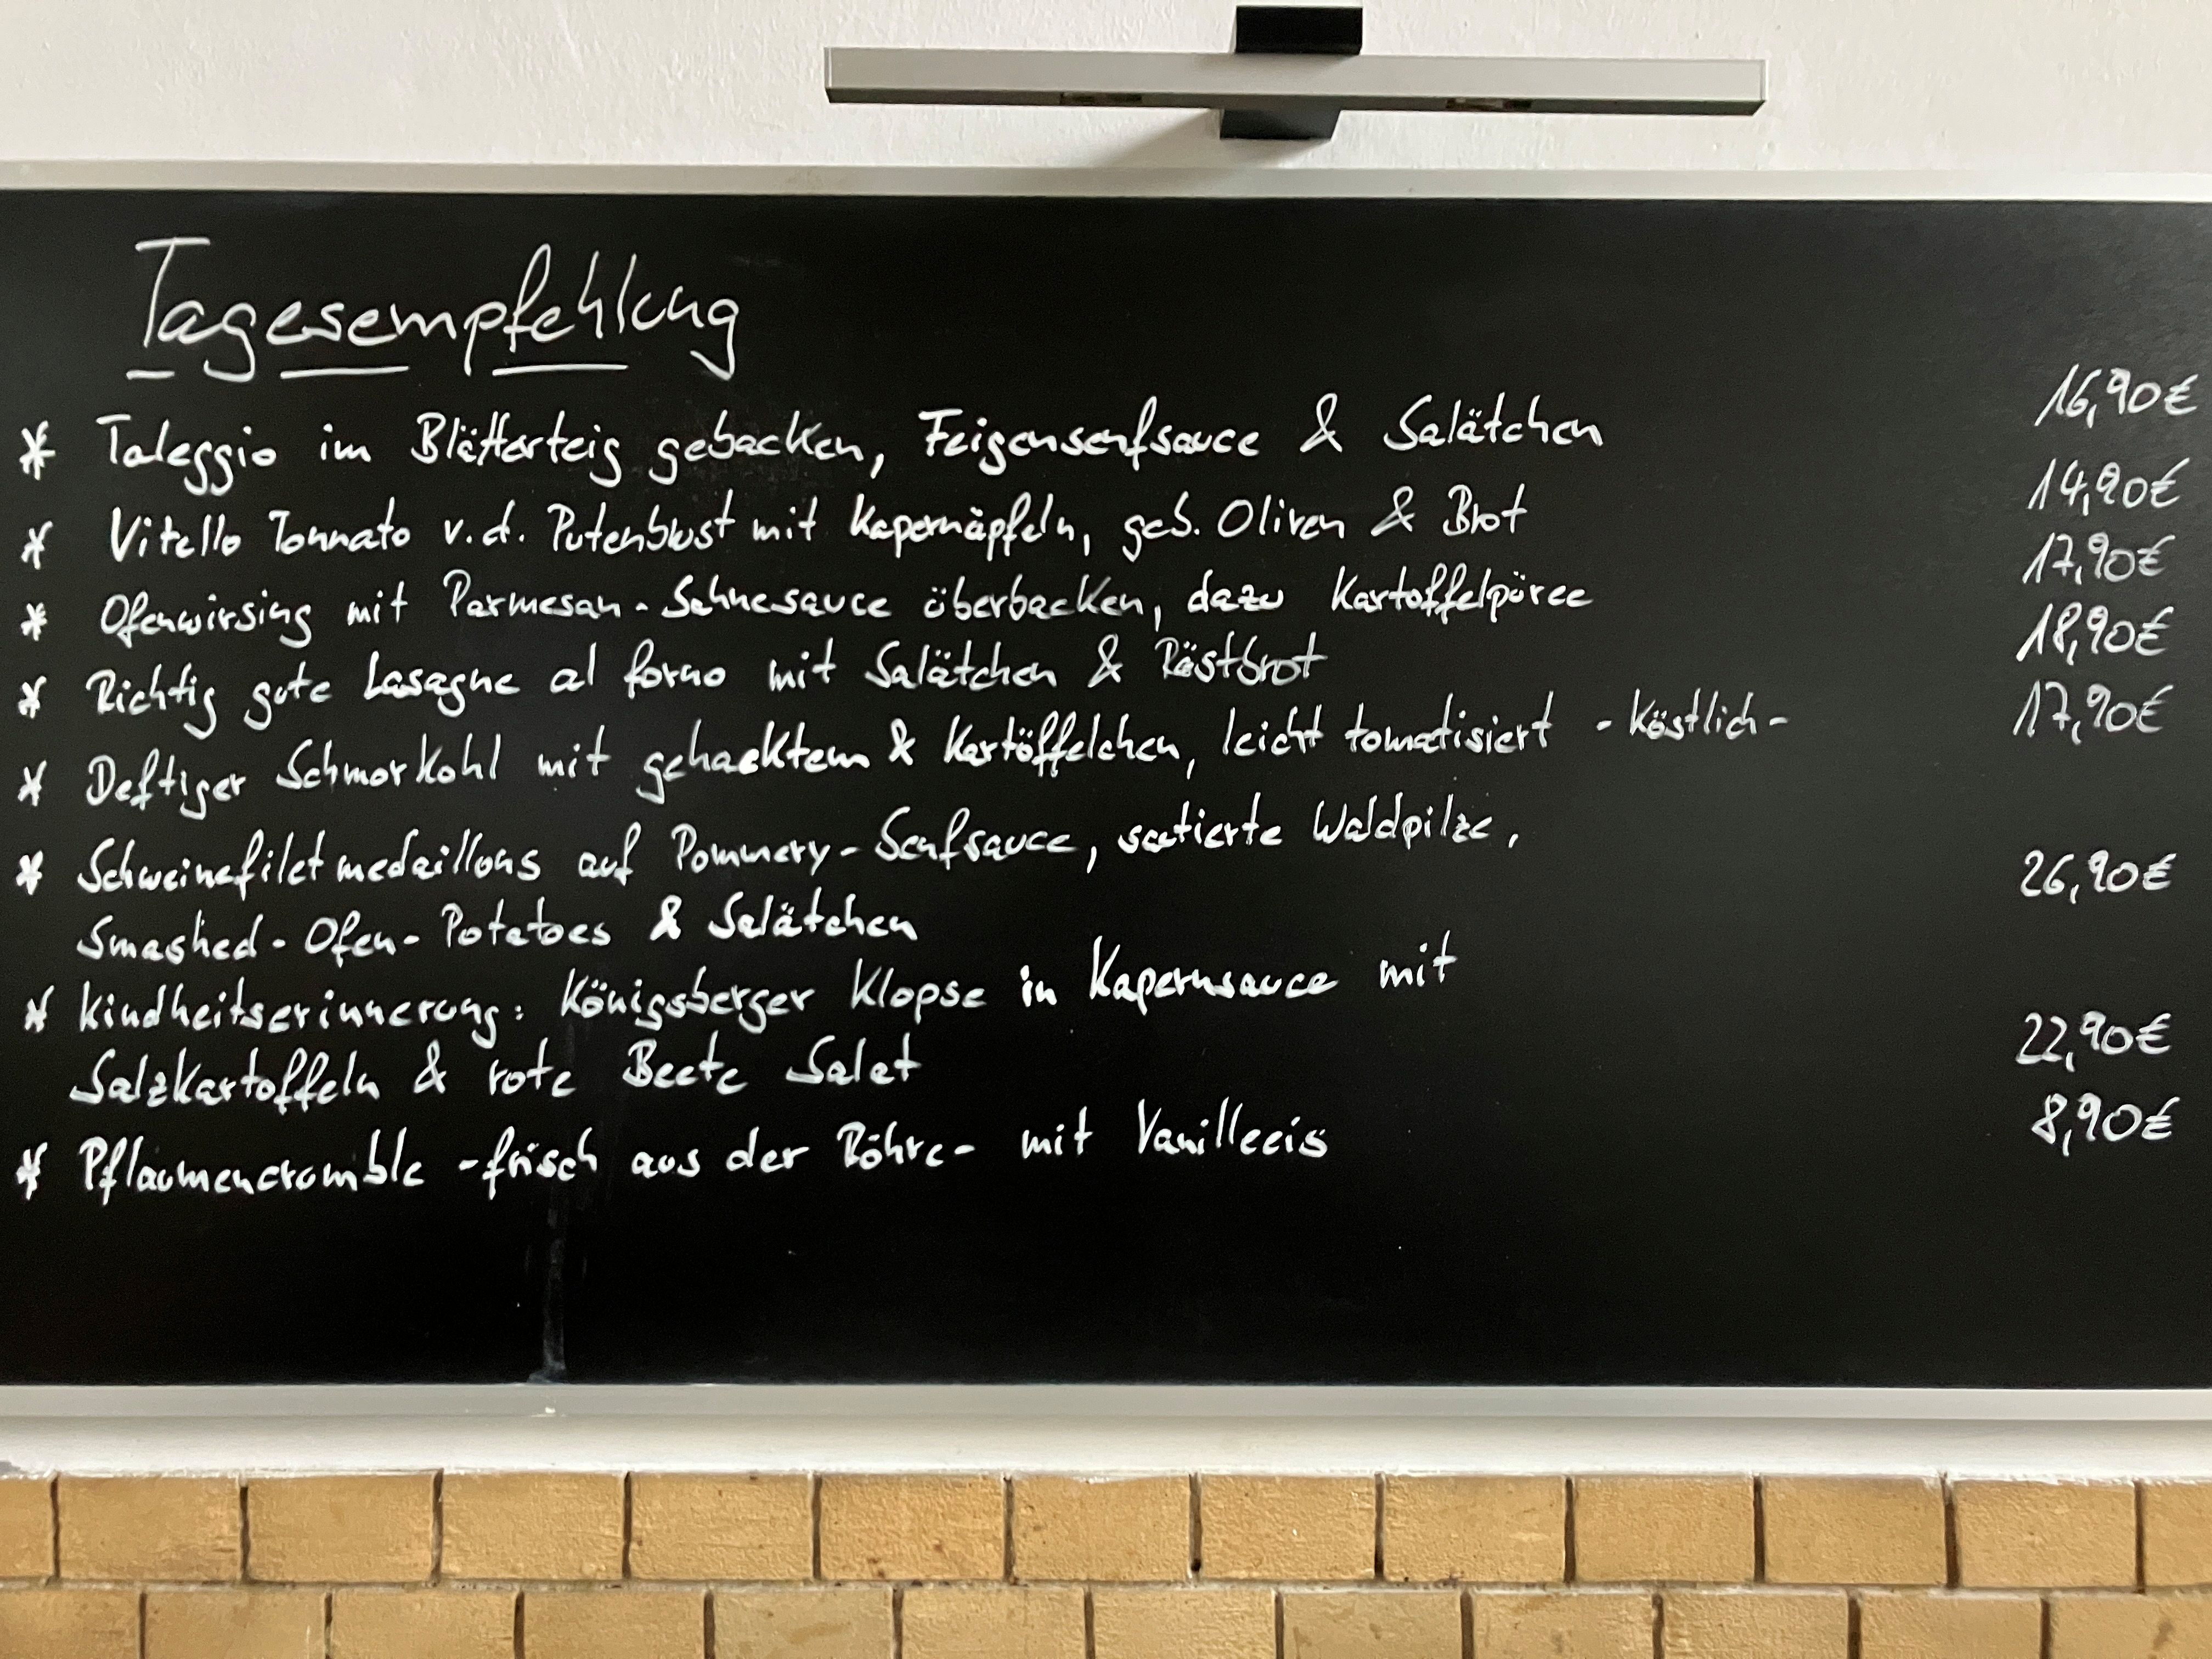 Tagesempfehlung
* Taleggio im Blätterteig gebacken, Feigensenfsauce & Salätchen 16,90€
* Vitello Tonnato v.d. Putenbrust mit Kapernäpfeln, geb. Oliven & Brot 14,90€
* Ofenwirsing mit Parmesan-Sahnesauce überbacken, dazu Kartoffelpüree 17,90€
* Richtig gute Lasagne al forno mit Salätchen & Röstbrot 18,90€
* Deftiger Schmorkohl mit gehacktem & Kartöffelchen, leicht tomatisiert - köstlich - 17,90€
* Schweinefiletmedaillons auf Pommery-Senfsauce, sautierte Waldpilze,
Smashed-Ofen-Potatoes & Salätchen 26,90€
* Kindheitserinnerung: Königsberger Klopse in Kapernsauce mit
Salzkartoffeln & rote Beete Salat 22,90€
* Pflaumencrumble -frisch aus der Röhre- mit Vanilleeis 8,90€